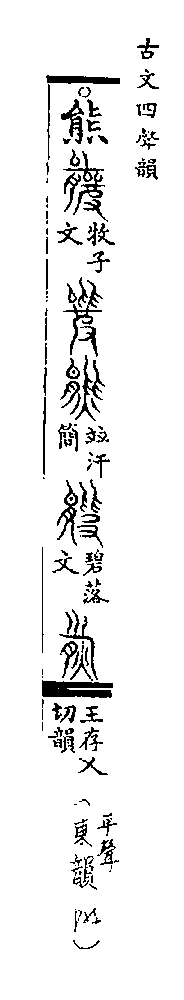 古文四聲韻
熊
牧子
文
竝汗
簡
碧落
文
王存乂
切韻
平聲
(東韻